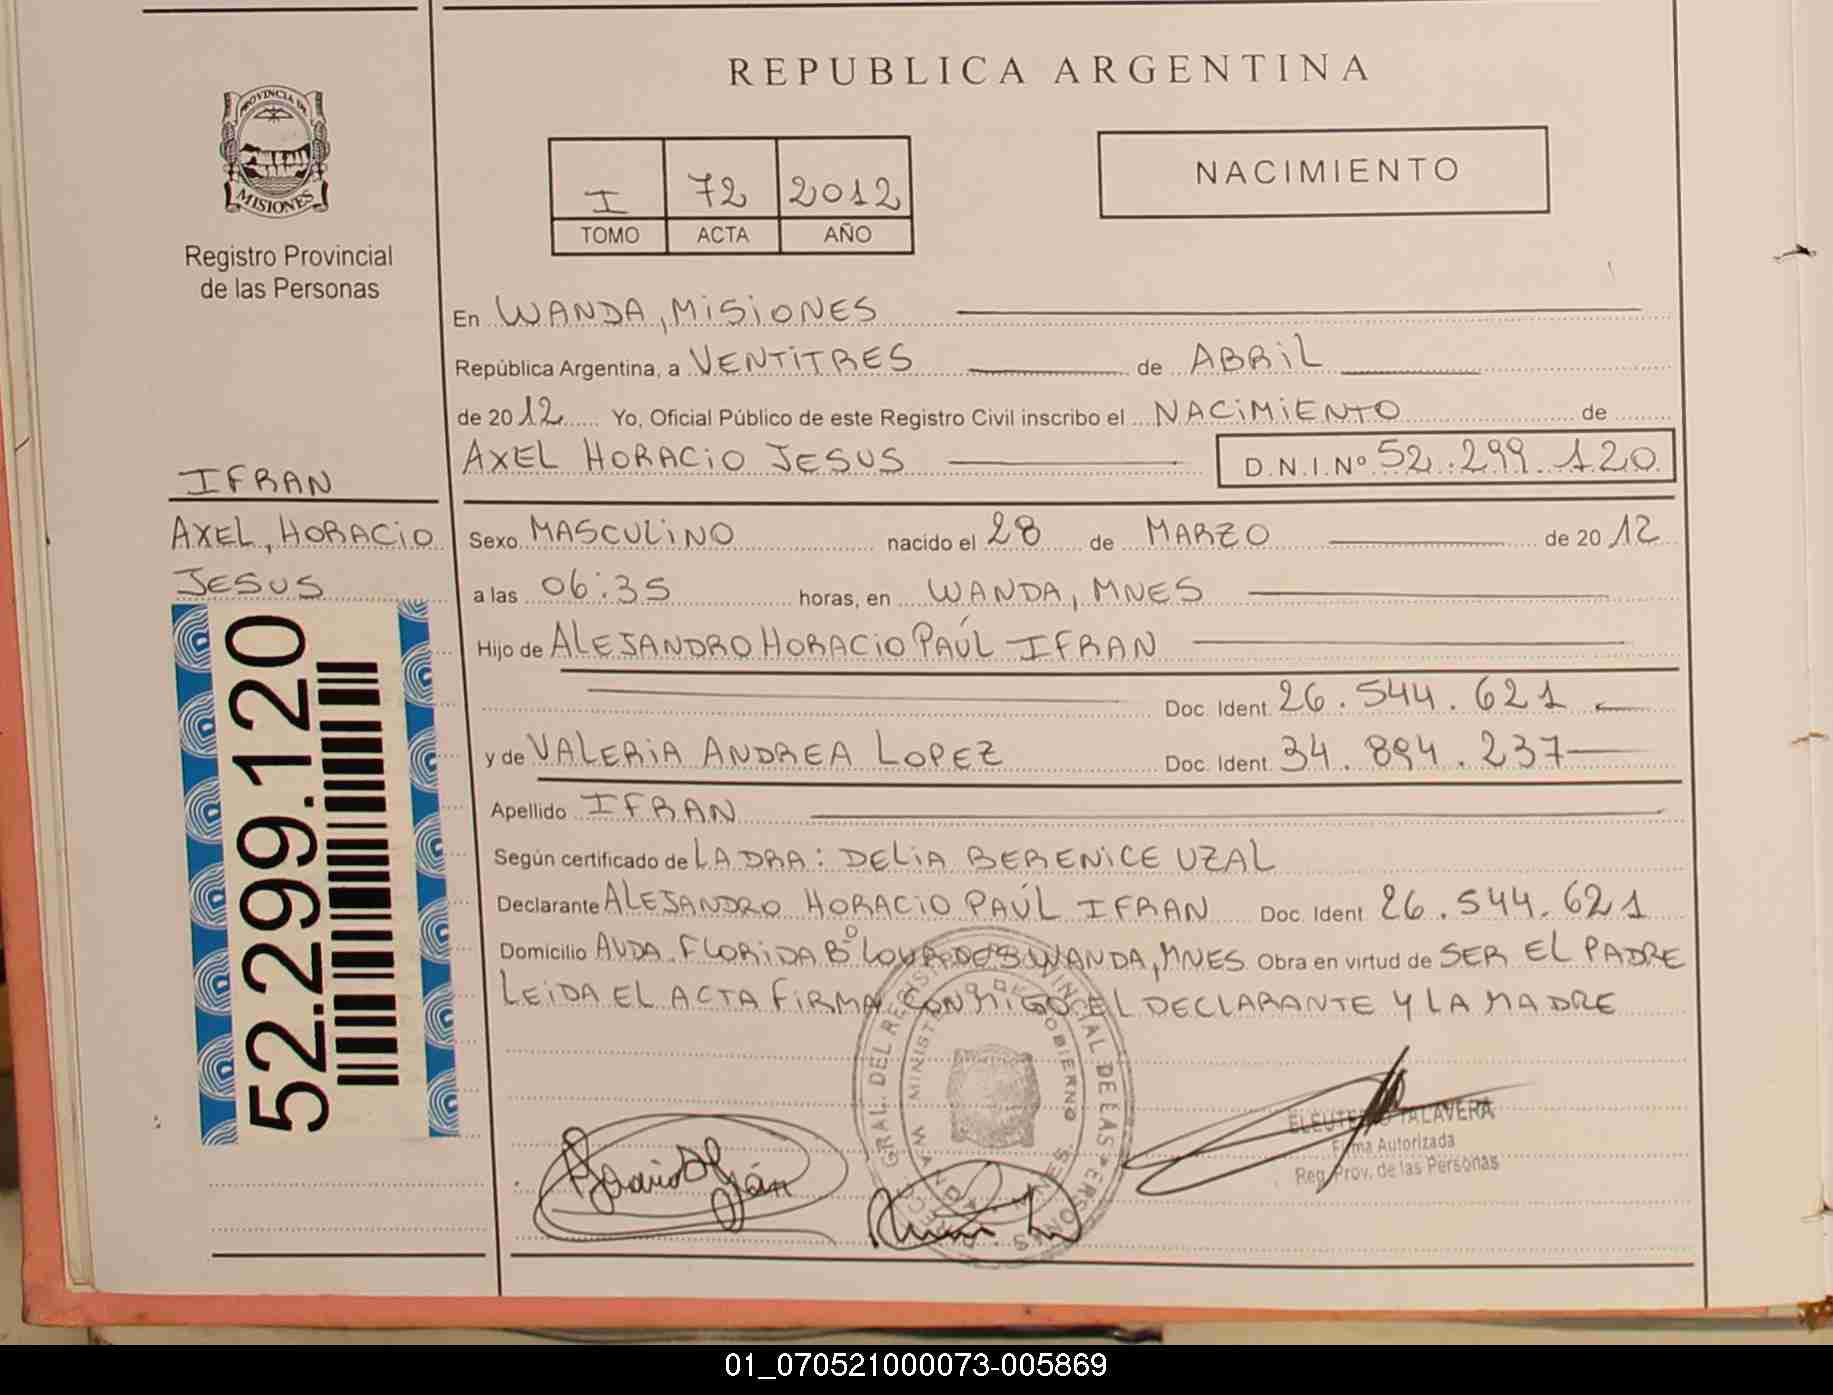 REPUBLICA ARGENTINA
PROVINCIA DE
MISIONES
Registro Provincial
de las Personas
I 72 2012
TOMO ACTA AÑO
NACIMIENTO
En WANDA, MISIONES
República Argentina, a VENTITRES de ABRIL
de 2012 Yo, Oficial Público de este Registro Civil inscribo el NACIMIENTO de
AXEL HORACIO JESUS D.N.I.Nº 52.299.120
IFRAN
AXEL, HORACIO
JESUS
52.299.120
Sexo MASCULINO nacido el 28 de MARZO de 2012
a las 06:35 horas, en WANDA, MNES
Hijo de ALEJANDRO HORACIO PAÚL IFRAN
Doc. Ident. 26.544.621
y de VALERIA ANDREA LOPEZ Doc. Ident. 34.894.237
Apellido IFRAN
Según certificado de LA DRA: DELIA BERENICE UZAL
Declarante ALEJANDRO HORACIO PAÚL IFRAN Doc. Ident 26.544.621
Domicilio AVDA. FLORIDA Bº LOURDES WANDA, MNES. Obra en virtud de SER EL PADRE
LEIDA EL ACTA FIRMA CONMIGO EL DECLARANTE Y LA MADRE
ELEUTERIO TALAVERA
Firma Autorizada
Reg. Prov. de las Personas
01_070521000073-005869